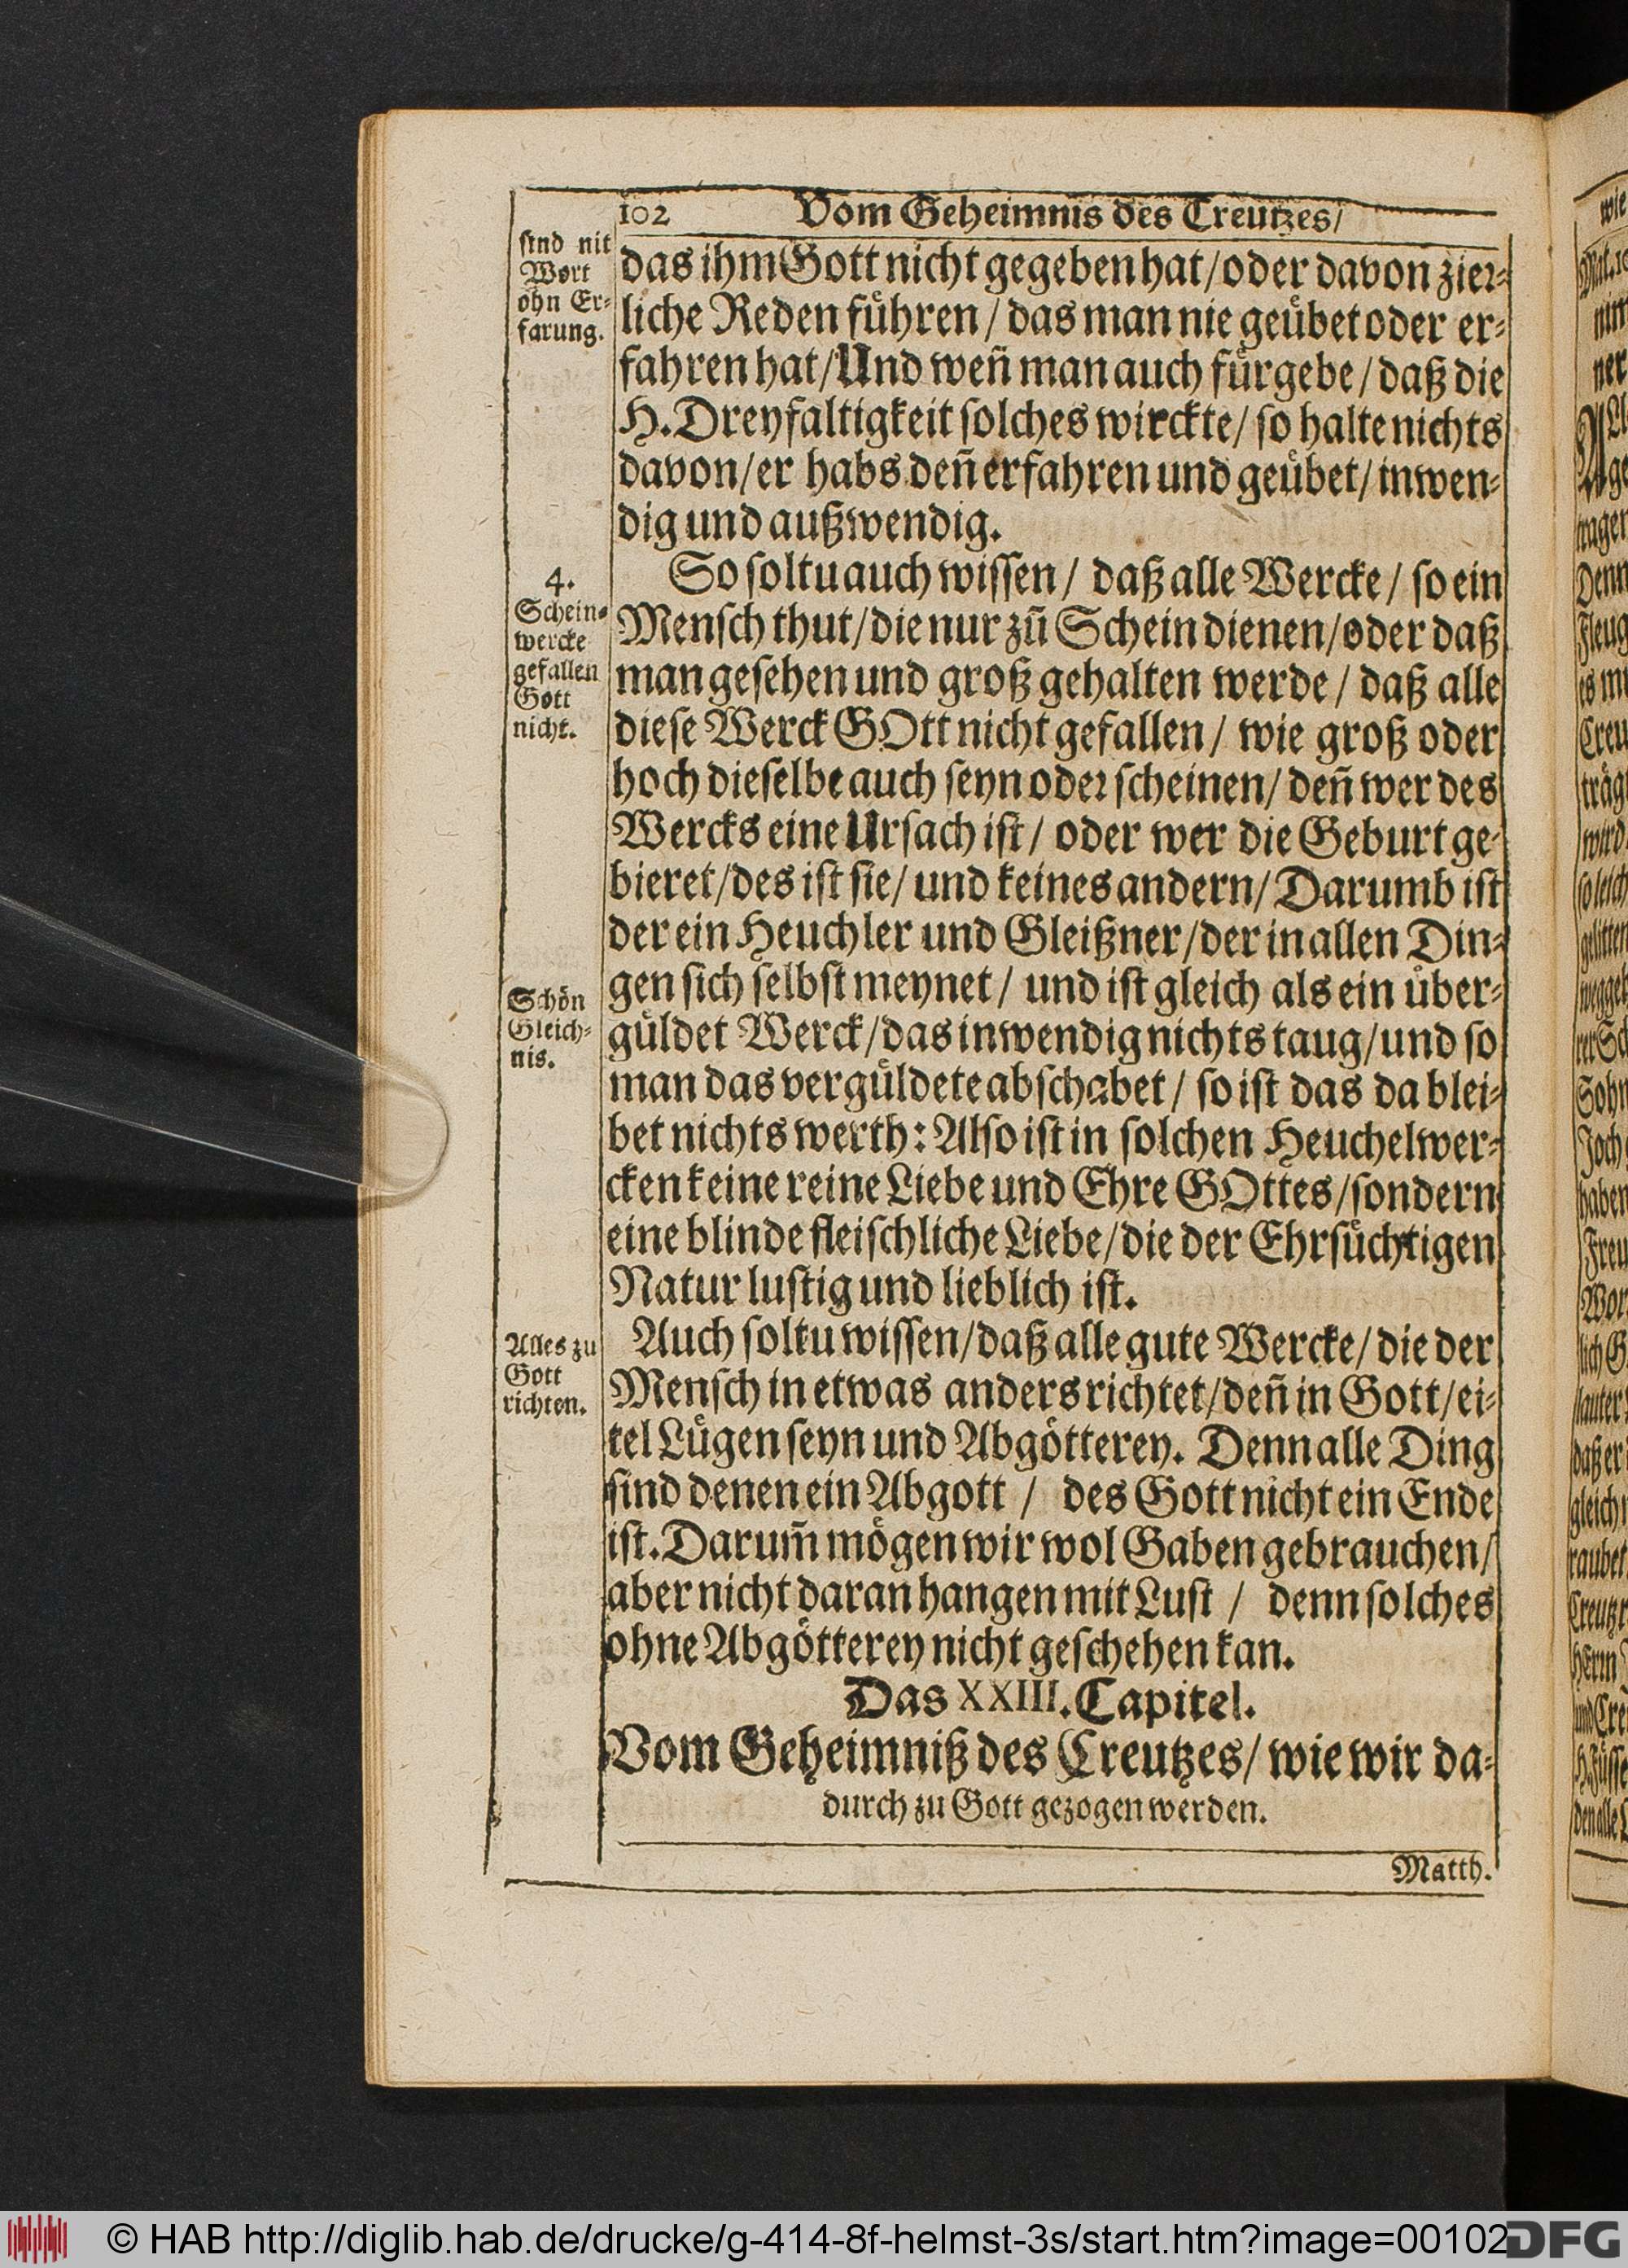 102 Vom Geheimnis des Creutzes/
sind nit
Wort
ohn Er-
farung.
das ihm Gott nicht gegeben hat/oder davon zier-
liche Reden führen/das man nie geübet oder er-
fahren hat/Und weñ man auch fürgebe/daß die
H. Dreyfaltigkeit solches wirckte/so halte nichts
davon/er habs deñ erfahren und geübet/inwen-
dig und außwendig.
4.
Schein-
wercke
gefallen
Gott
nicht.
So soltu auch wissen/ daß alle Wercke/ so ein
Mensch thut/die nur zū Schein dienen/oder daß
man gesehen und groß gehalten werde/ daß alle
diese Werck GOtt nicht gefallen/ wie groß oder
hoch dieselbe auch seyn oder scheinen/ deñ wer des
Wercks eine Ursach ist/ oder wer die Geburt ge-
bieret/des ist sie/ und keines andern/Darumb ist
der ein Heuchler und Gleißner/der in allen Din-
Schön
Gleich-
nis.
gen sich selbst meynet/ und ist gleich als ein über-
güldet Werck/das inwendig nichts taug/und so
man das vergüldete abschabet/ so ist das da blei-
bet nichts werth: Also ist in solchen Heuchelwer-
cken keine reine Liebe und Ehre GOttes/sondern
eine blinde fleischliche Liebe/die der Ehrsüchtigen
Natur lustig und lieblich ist.
Alles zu
Gott
richten.
Auch soltu wissen/daß alle gute Wercke/die der
Mensch in etwas anders richtet/deñ in Gott/ei-
tel Lügen seyn und Abgötterey. Denn alle Ding
sind denen ein Abgott/ des Gott nicht ein Ende
ist. Darum̄ mögen wir wol Gaben gebrauchen/
aber nicht daran hangen mit Lust/ denn solches
ohne Abgötterey nicht geschehen kan.
Das XXIII. Capitel.
Vom Geheimniß des Creutzes/ wie wir da-
durch zu Gott gezogen werden.
Matth.
© HAB http://diglib.hab.de/drucke/g-414-8f-helmst-3s/start.htm?image=00102
DFG